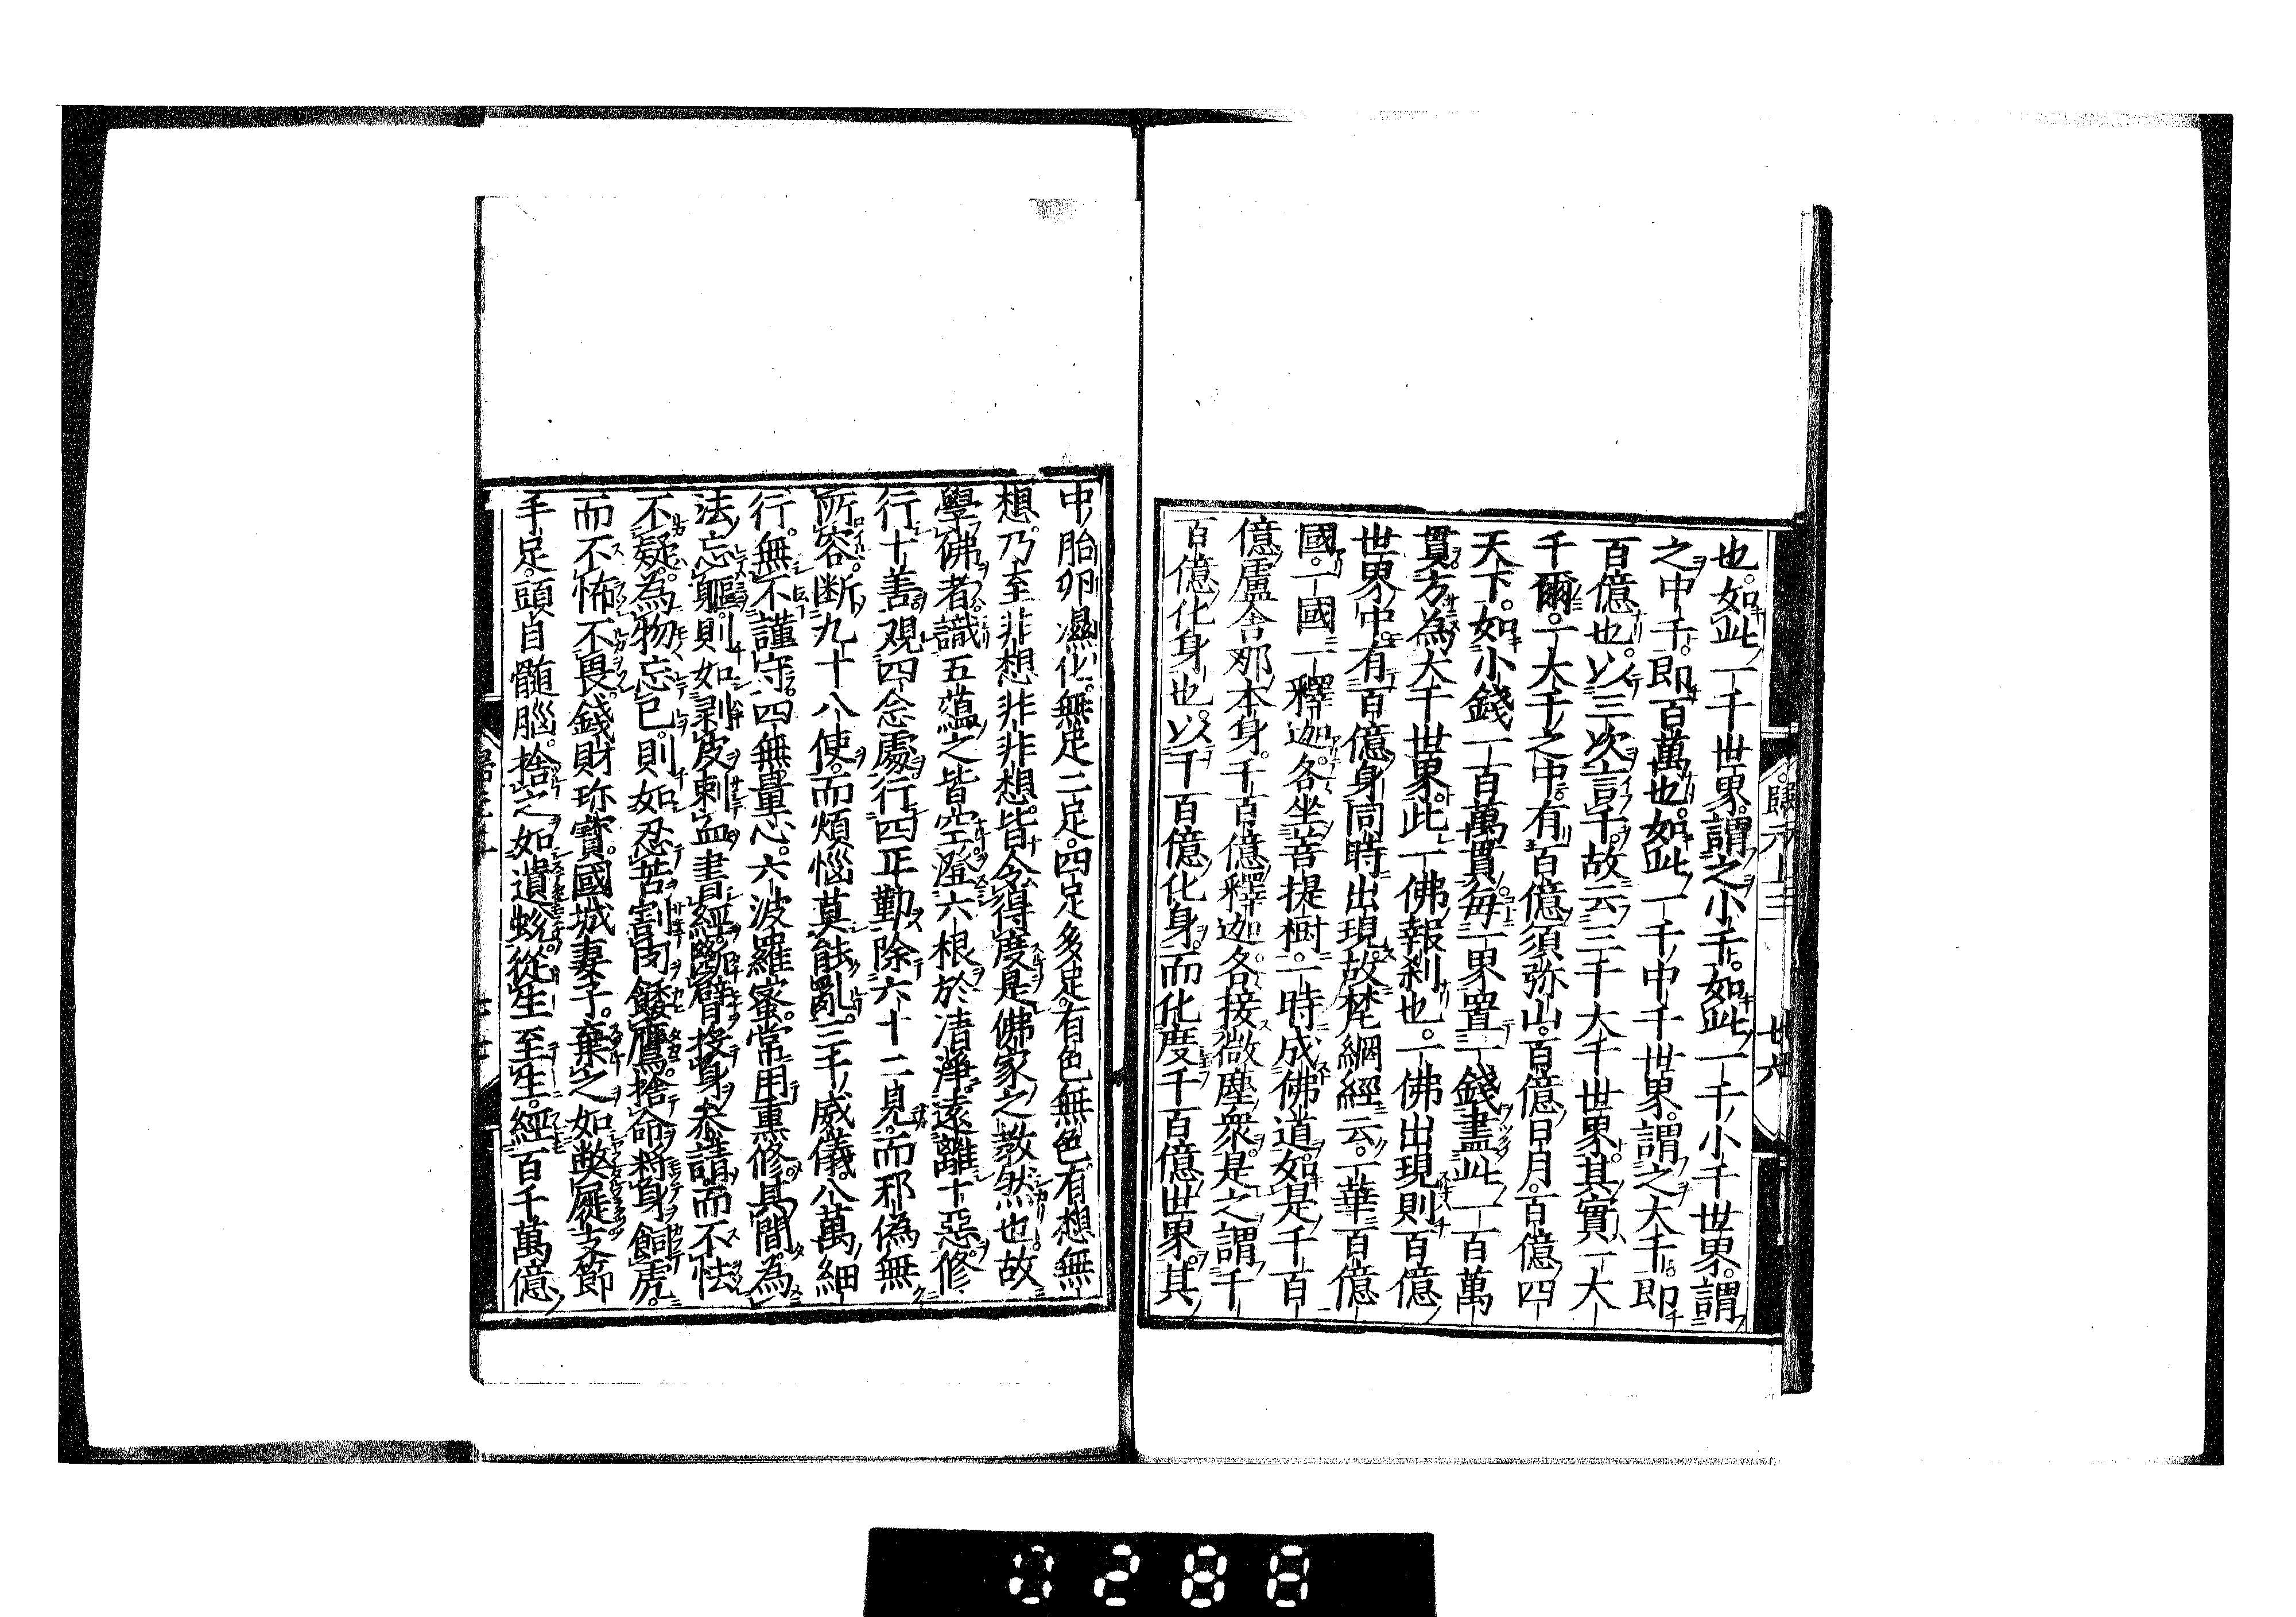 也。如此一千世界。謂之小千。如此一千小千世界。謂
之中千。即百萬也。如此一千中千世界。謂之大千。即
百億也。以三次言千。故云三千大千世界。其實一大
千爾。一大千之中。有百億須弥山。百億日月。百億四
天下。如小錢一百萬貫。每一界置一錢。盡此一百萬
貫。方為大千世界。此一佛報刹也。一佛出現。則百億
世界中。有百億身同時出現。故梵網經云。一華百億
國。一國一釋迦。各坐菩提樹。一時成佛道。如是千百
億。盧舍那本身。千百億釋迦。各接微塵衆。是之謂千
百億化身也。以千百億化身。而化度千百億世界。其
歸元十三 廿六
中胎卵濕化。無足二足。四足多足。有色無色。有想無
想。乃至非想非非想。皆令得度。是佛家之教然也。故
學佛者。識五蘊之皆空。澄六根於清淨。遠離十惡。修
行十善。觀四念處。行四正勤。除六十二見。而邪偽無
所容。断九十八使。而煩惱莫能亂。三千威儀。八萬細
行。無不謹守。四無量心。六波羅蜜。常用熏修。其間為
法忘軀。則如剥皮刺血書經。斷臂投身參請。而不怯
不疑。為物忘已。則如忍苦割肉餧鷹。捨命將身飼虎。
而不怖不畏。錢財珎寳。國城妻子。棄之如弊屣。支節
手足。頭目髄腦。捨之如遺蛻。從生至生。經百千萬億
0288